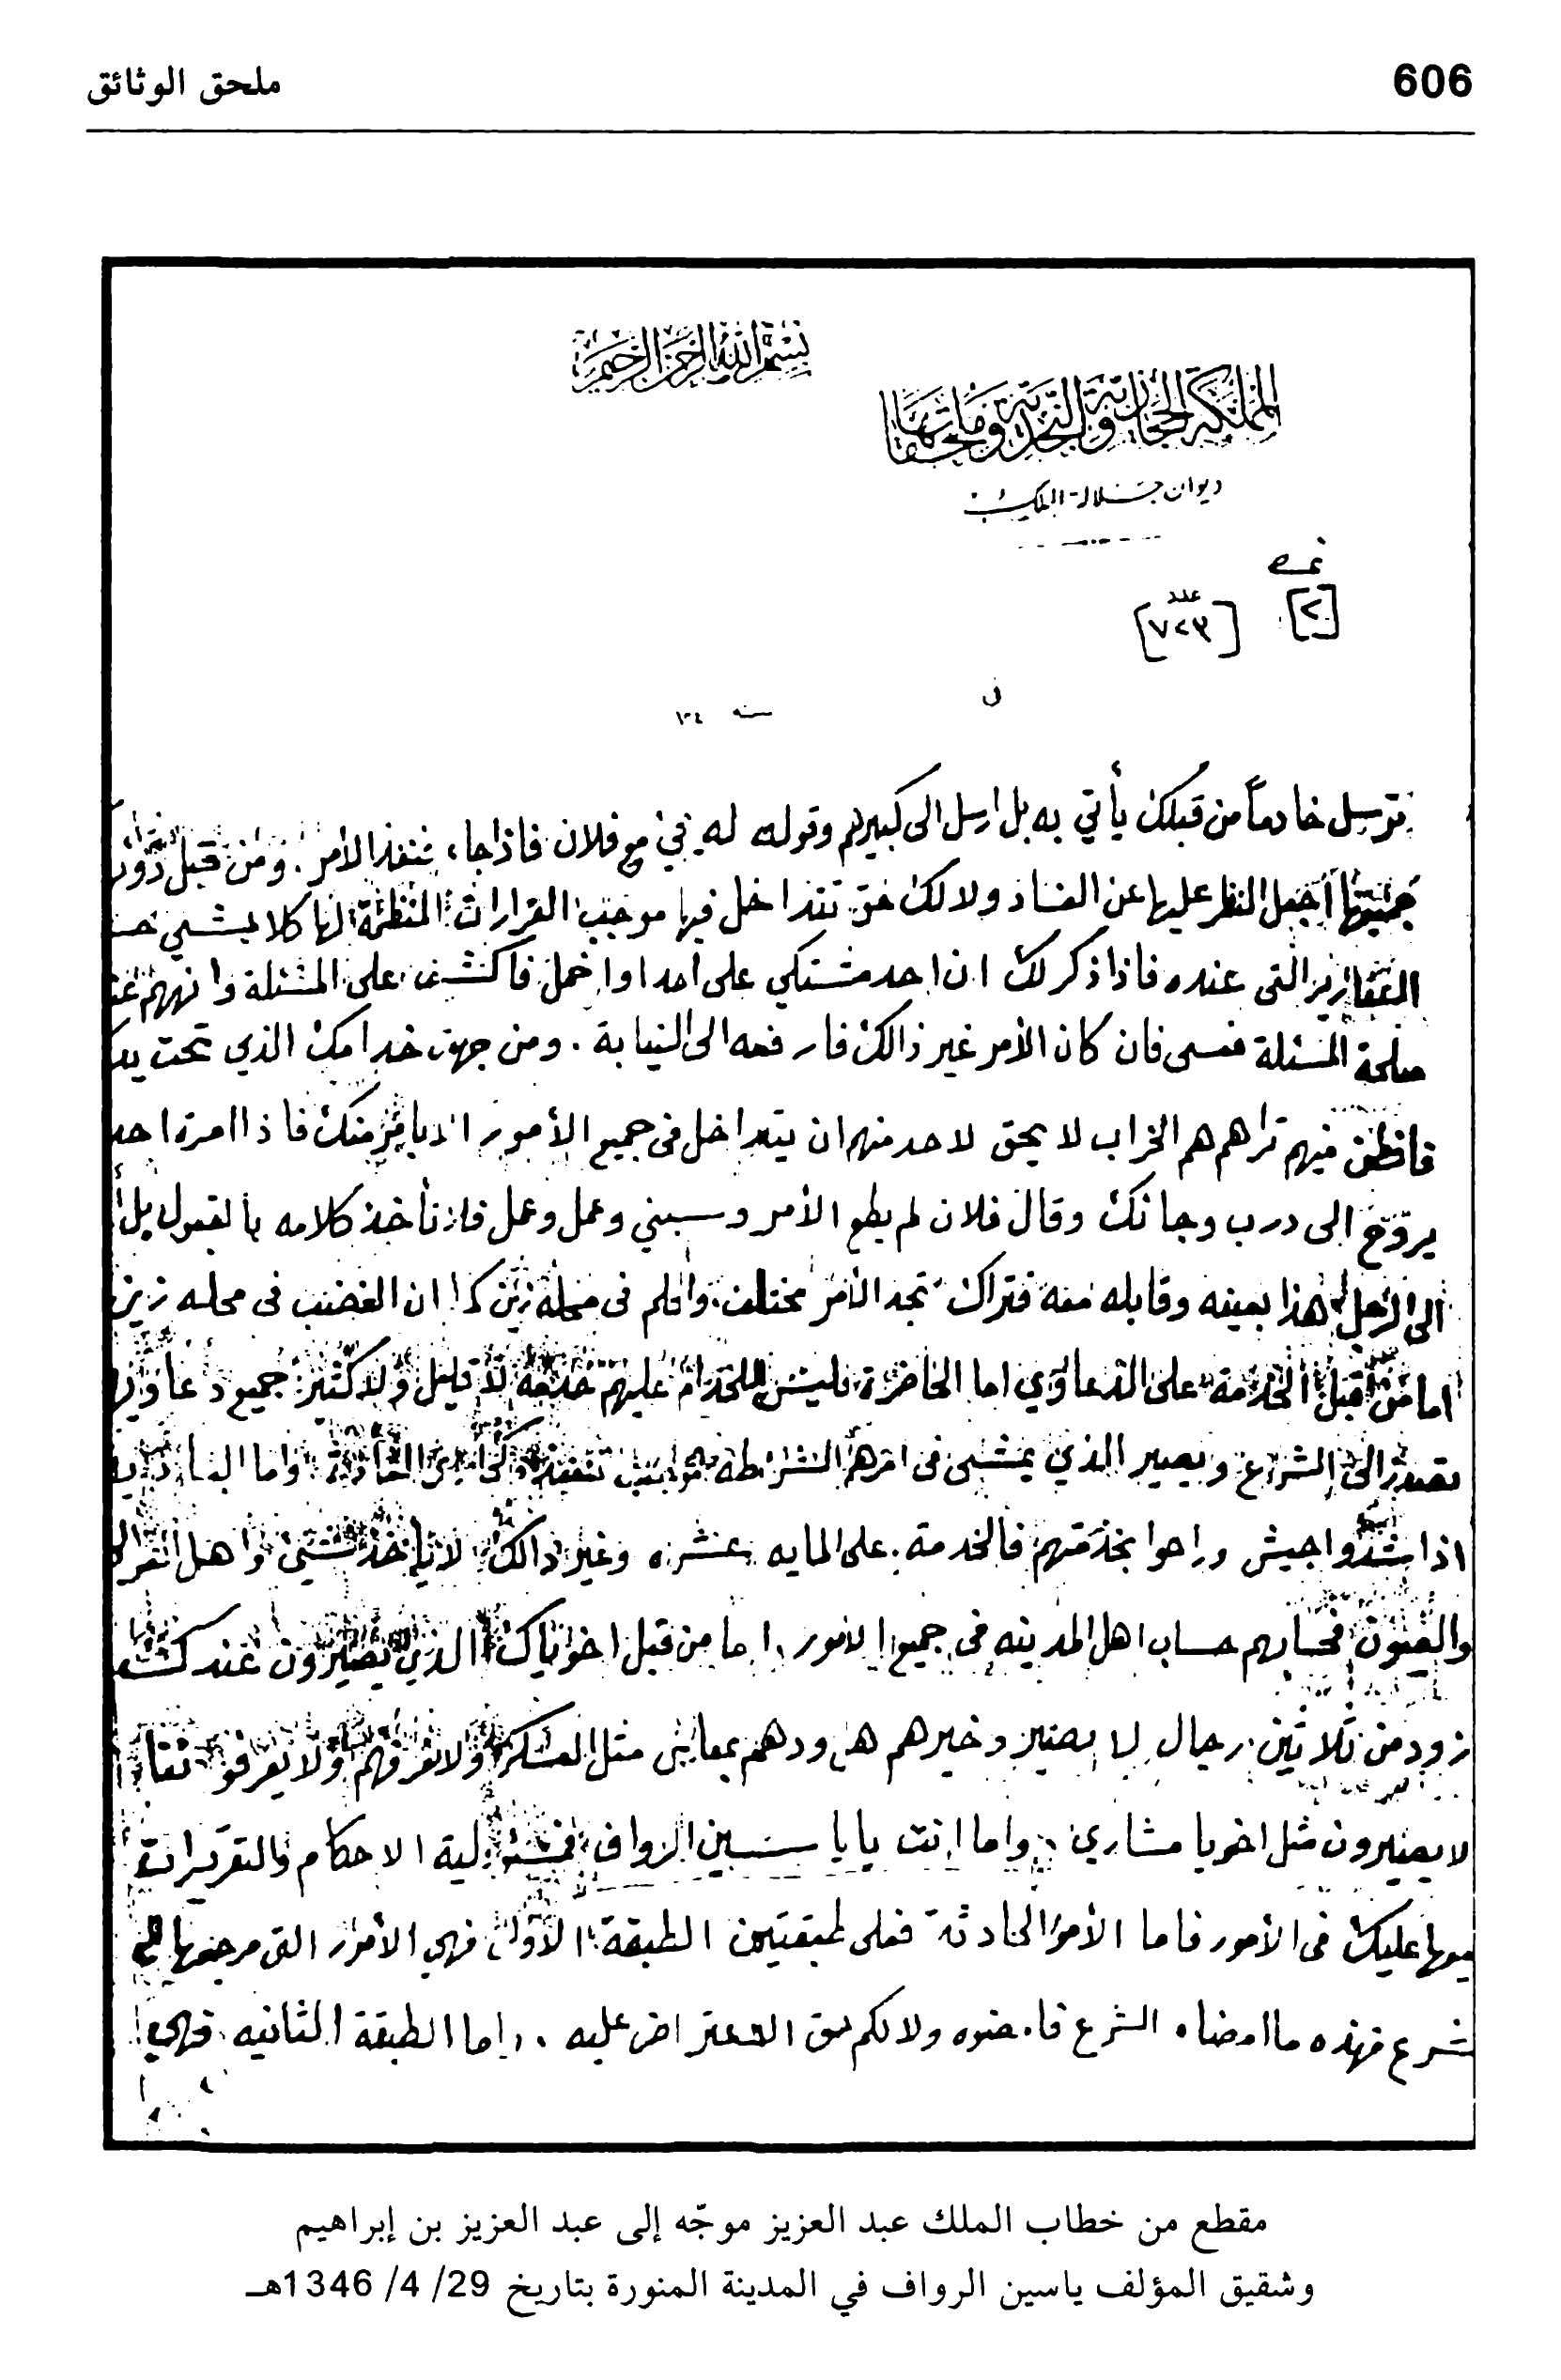 606
ملحق الوثائق
بسم الله الرحمن الرحيم
المملكة الحجازية والنجدية وملحقاتها
ديوان جلالة الملك
نمرة
[٢] عدد [٧٢٣]
في سنه ١٣٤
ترسل خادماً من قبلك يأتي به بل ارسل الى كبيرهم وقوله له يجي مع فلان فاذا جاء ينفذ الأمر. ومن قبل
جميعها اجعل النظر عليها عن الفساد ولا لك حق تتداخل فيها موجب القرارات المنظمة لها كلا يمشي
التقارير التى عنده فاذا ذكر لك ان احد مشتكي على احد او اخمل فاكشف على المسئلة وانهم
صلحة المسئلة فعسى فان كان الأمر غير ذالك فارفعه الى النيابة . ومن جهة خدامك الذي تحت يدك
فانظر فيهم تراهم هم الخراب لا يحق لاحد منهم ان يتداخل فى جميع الأمور الا بامر منك فاذا امرة احد
يروح الى درب وجا لك وقال فلان لم يطع الأمر وسبني وعمل وعمل فلا تأخذ كلامه بالقبول بل
الى الرجل هذا بعينه وقابله معه فتراك تجد الأمر مختلف والحلم فى محله زين كما ان الغضب فى محله زين
اما من قبل الخدمة على الدعاوي اما الحاضرة فليس للخدام عليهم خدمة لا قليل ولا كثير جميع دعاويها
تصدر الى الشرع ويصير الذي يمشي فى امرهم الشرطة واما البادية
اذا شدوا جيش وراحوا بخدمتهم فالخدمة على المايه عشره وغير ذالك لا ياخذ شيئ واهل
والعيون فحسابهم حساب اهل المدينه فى جميع الامور . اما من قبل اخوياك الذين يصيرون عند
زود من ثلاثين رجال لا يصير وخيرهم هل ودهم بمعاش مثل العسكر ولا نعرفهم ولا يعرفو
لا يصيرون مثل اخويا مشاري . واما انت يا ياسين الرواف فمسئولية الاحكام والتقريرات
عليك فى الأمور فاما الأمور الحادثة فعلى طبقتين الطبقة الأولى فهي الأمور التى مرجعها
شرع فهذه ما امضاه الشرع فامضوه ولا لكم حق الاعتراض عليه . واما الطبقة الثانيه فهي
مقطع من خطاب الملك عبد العزيز موجّه إلى عبد العزيز بن إبراهيم
وشقيق المؤلف ياسين الرواف في المدينة المنورة بتاريخ 29/ 4/ 1346هـ